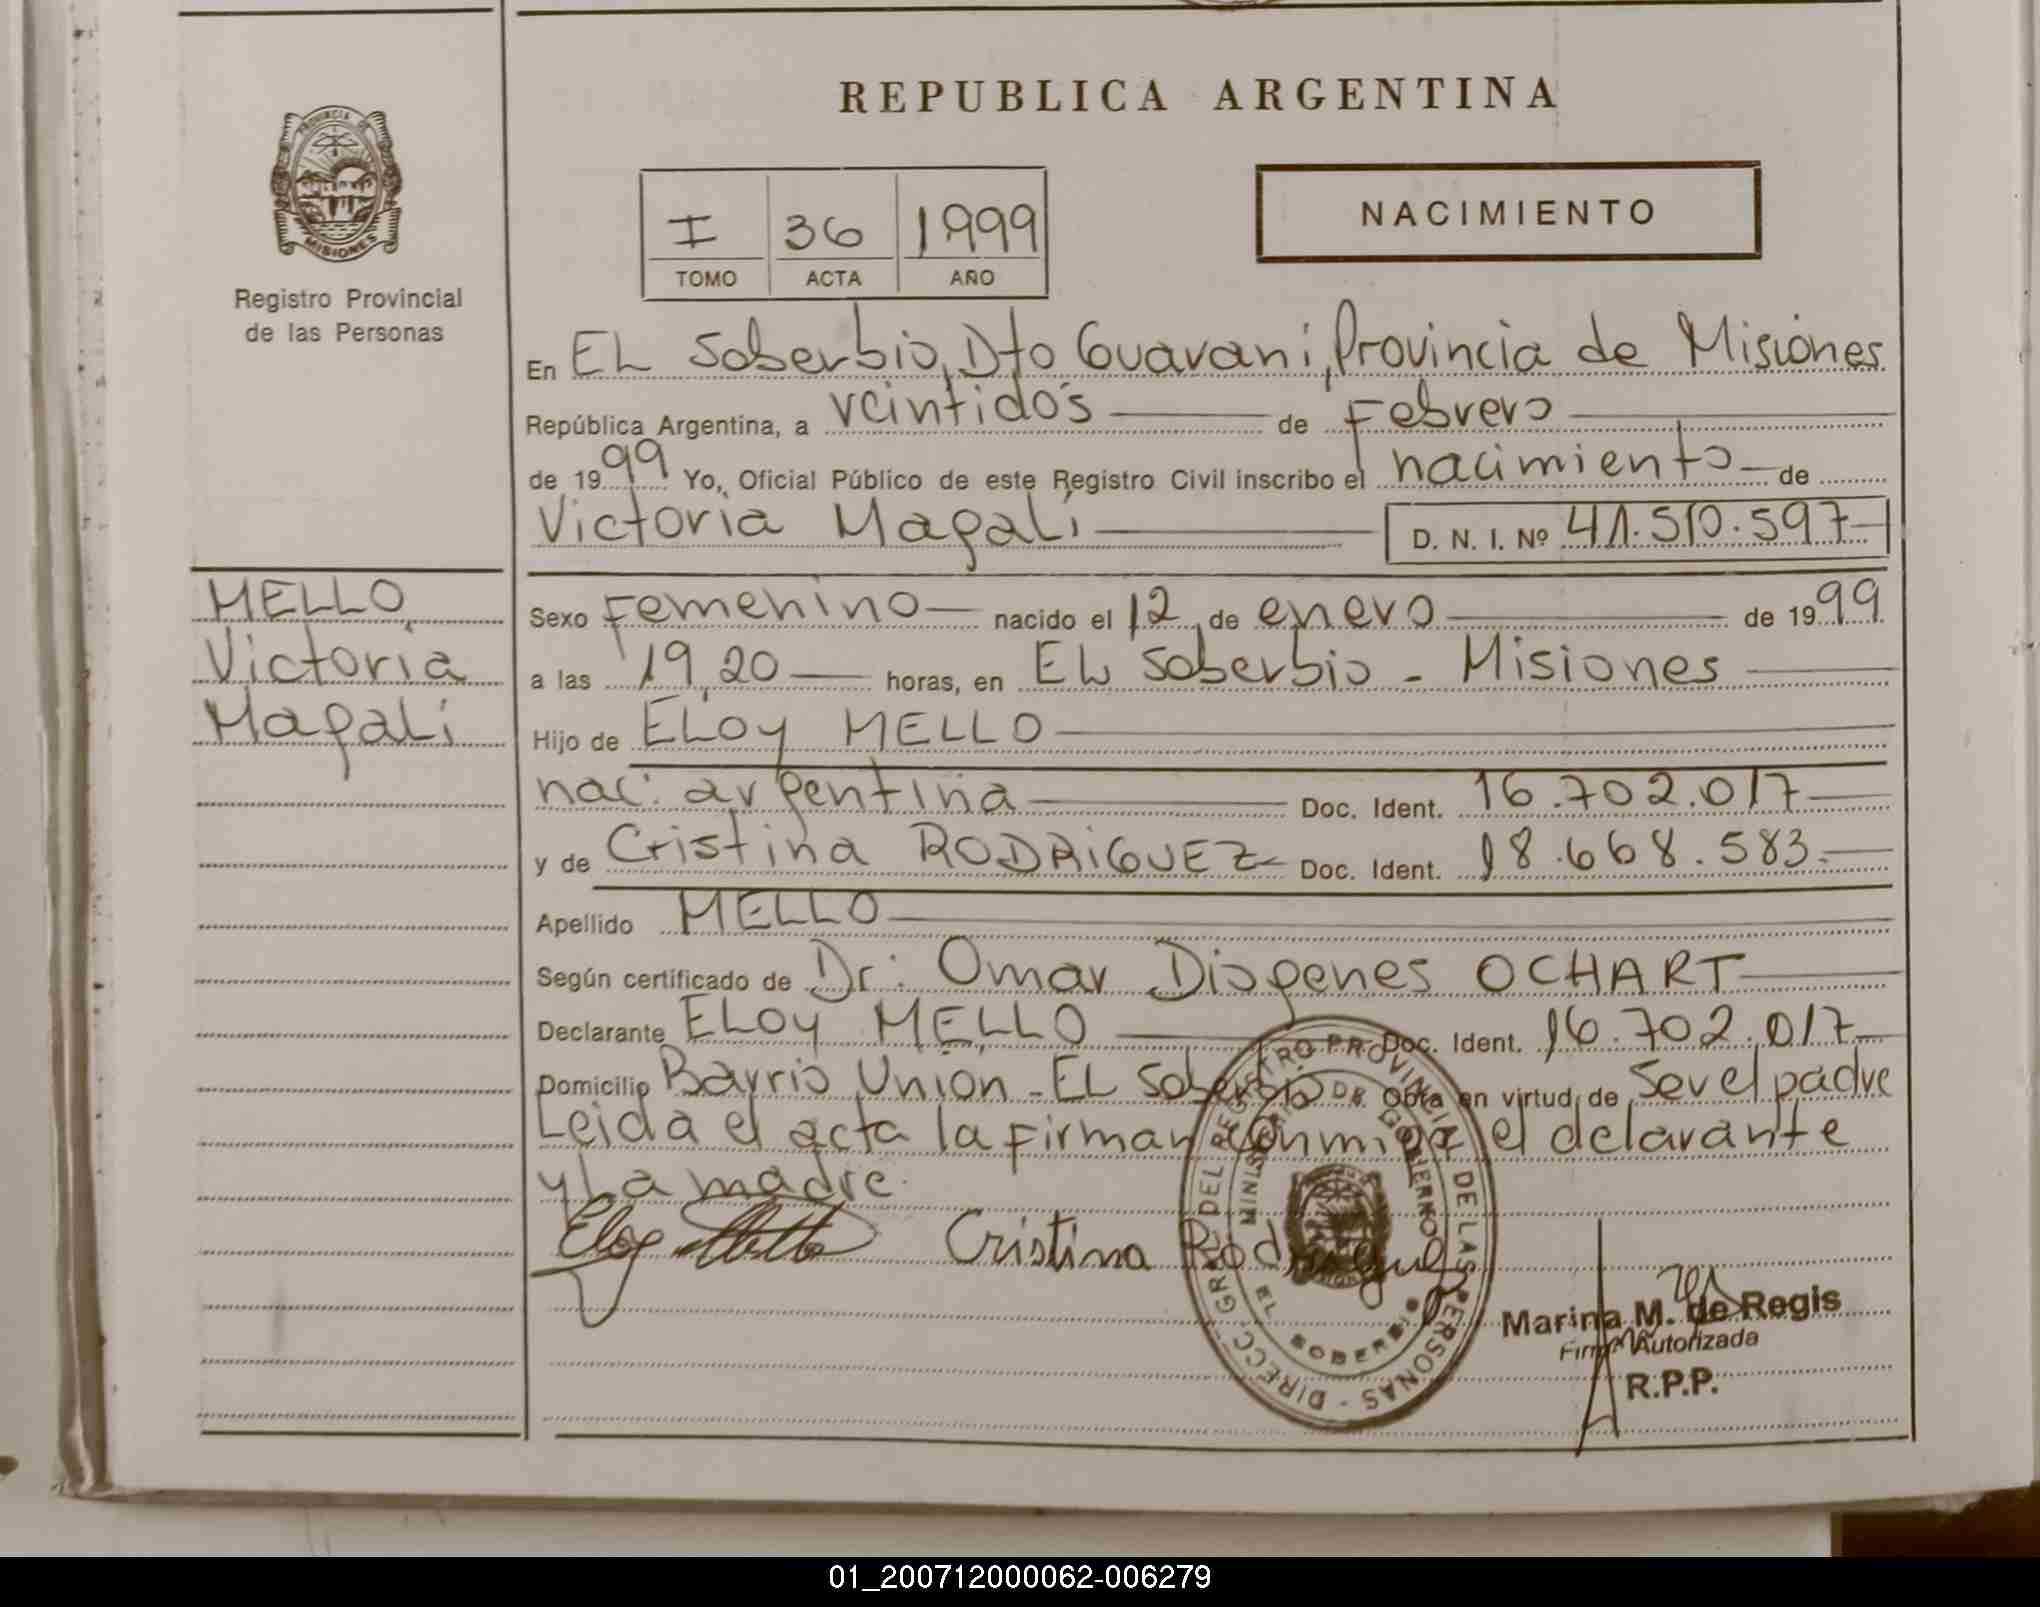 REPUBLICA ARGENTINA
PROVINCIA DE
MISIONES
Registro Provincial
de las Personas
I 36 1999
TOMO ACTA AÑO
NACIMIENTO
En EL Soberbio, Dto Guarani, Provincia de Misiones
República Argentina, a veintidós de Febrero
de 1999 Yo, Oficial Público de este Registro Civil inscribo el nacimiento de
Victoria Magali D. N. I. Nº 41.510.597
MELLO
Victoria
Magali
Sexo Femenino nacido el 12 de enero de 1999
a las 19,20 horas, en EL Soberbio - Misiones
Hijo de ELOY MELLO
nac: argentina Doc. Ident. 16.702.017
y de Cristina RODRIGUEZ Doc. Ident. 18.668.583.
Apellido MELLO
Según certificado de Dr: Omar Diogenes OCHART
Declarante ELOY MELLO Doc. Ident. 16.702.017
Domicilio Barrio Union - EL Soberbio Obra en virtud de Ser el padre
Leida el acta la firman conmigo el delarante
y La madre.
Eloy Mello Cristina Rodriguez
DIRECC. GRAL. DEL REGISTRO PROVINCIAL DE LAS PERSONAS
MINISTERIO DE GOBIERNO
EL SOBERBIO
Marina M. de Regis
Firma Autorizada
R.P.P.
01_200712000062-006279